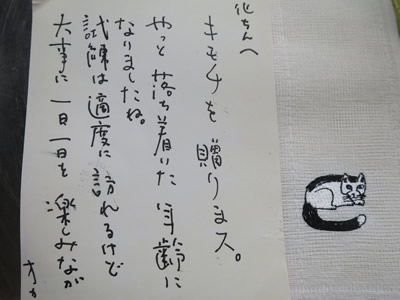 化ちんへ
キモチを 贈りまス。
やっと 落ち着いた 年齢に
なりましたね。
試練は適度に訪れるけど
大事に 一日一日を 楽しみなが